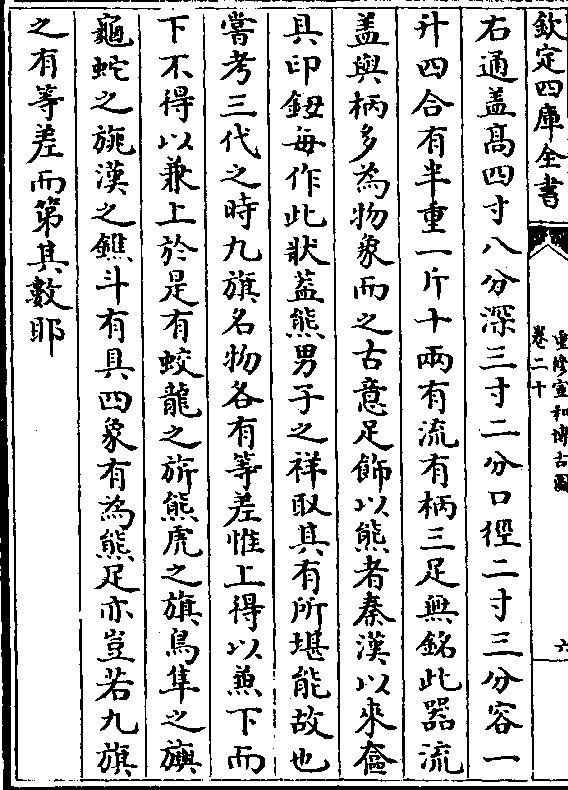 欽定四庫全書
重修宣和博古圖
卷二十
六
右通蓋髙四寸八分深三寸二分口徑二寸三分容一
升四合有半重一斤十兩有流有柄三足無銘此器流
蓋與柄多為物象而之古意足飾以熊者秦漢以來奩
具印鈕每作此狀葢熊男子之祥取其有所堪能故也
嘗考三代之時九旗名物各有等差惟上得以兼下而
下不得以兼上於是有蛟龍之旂熊虎之旗鳥隼之旟
龜蛇之旐漢之鐎斗有具四象有為熊足亦豈若九旗
之有等差而第其數耶